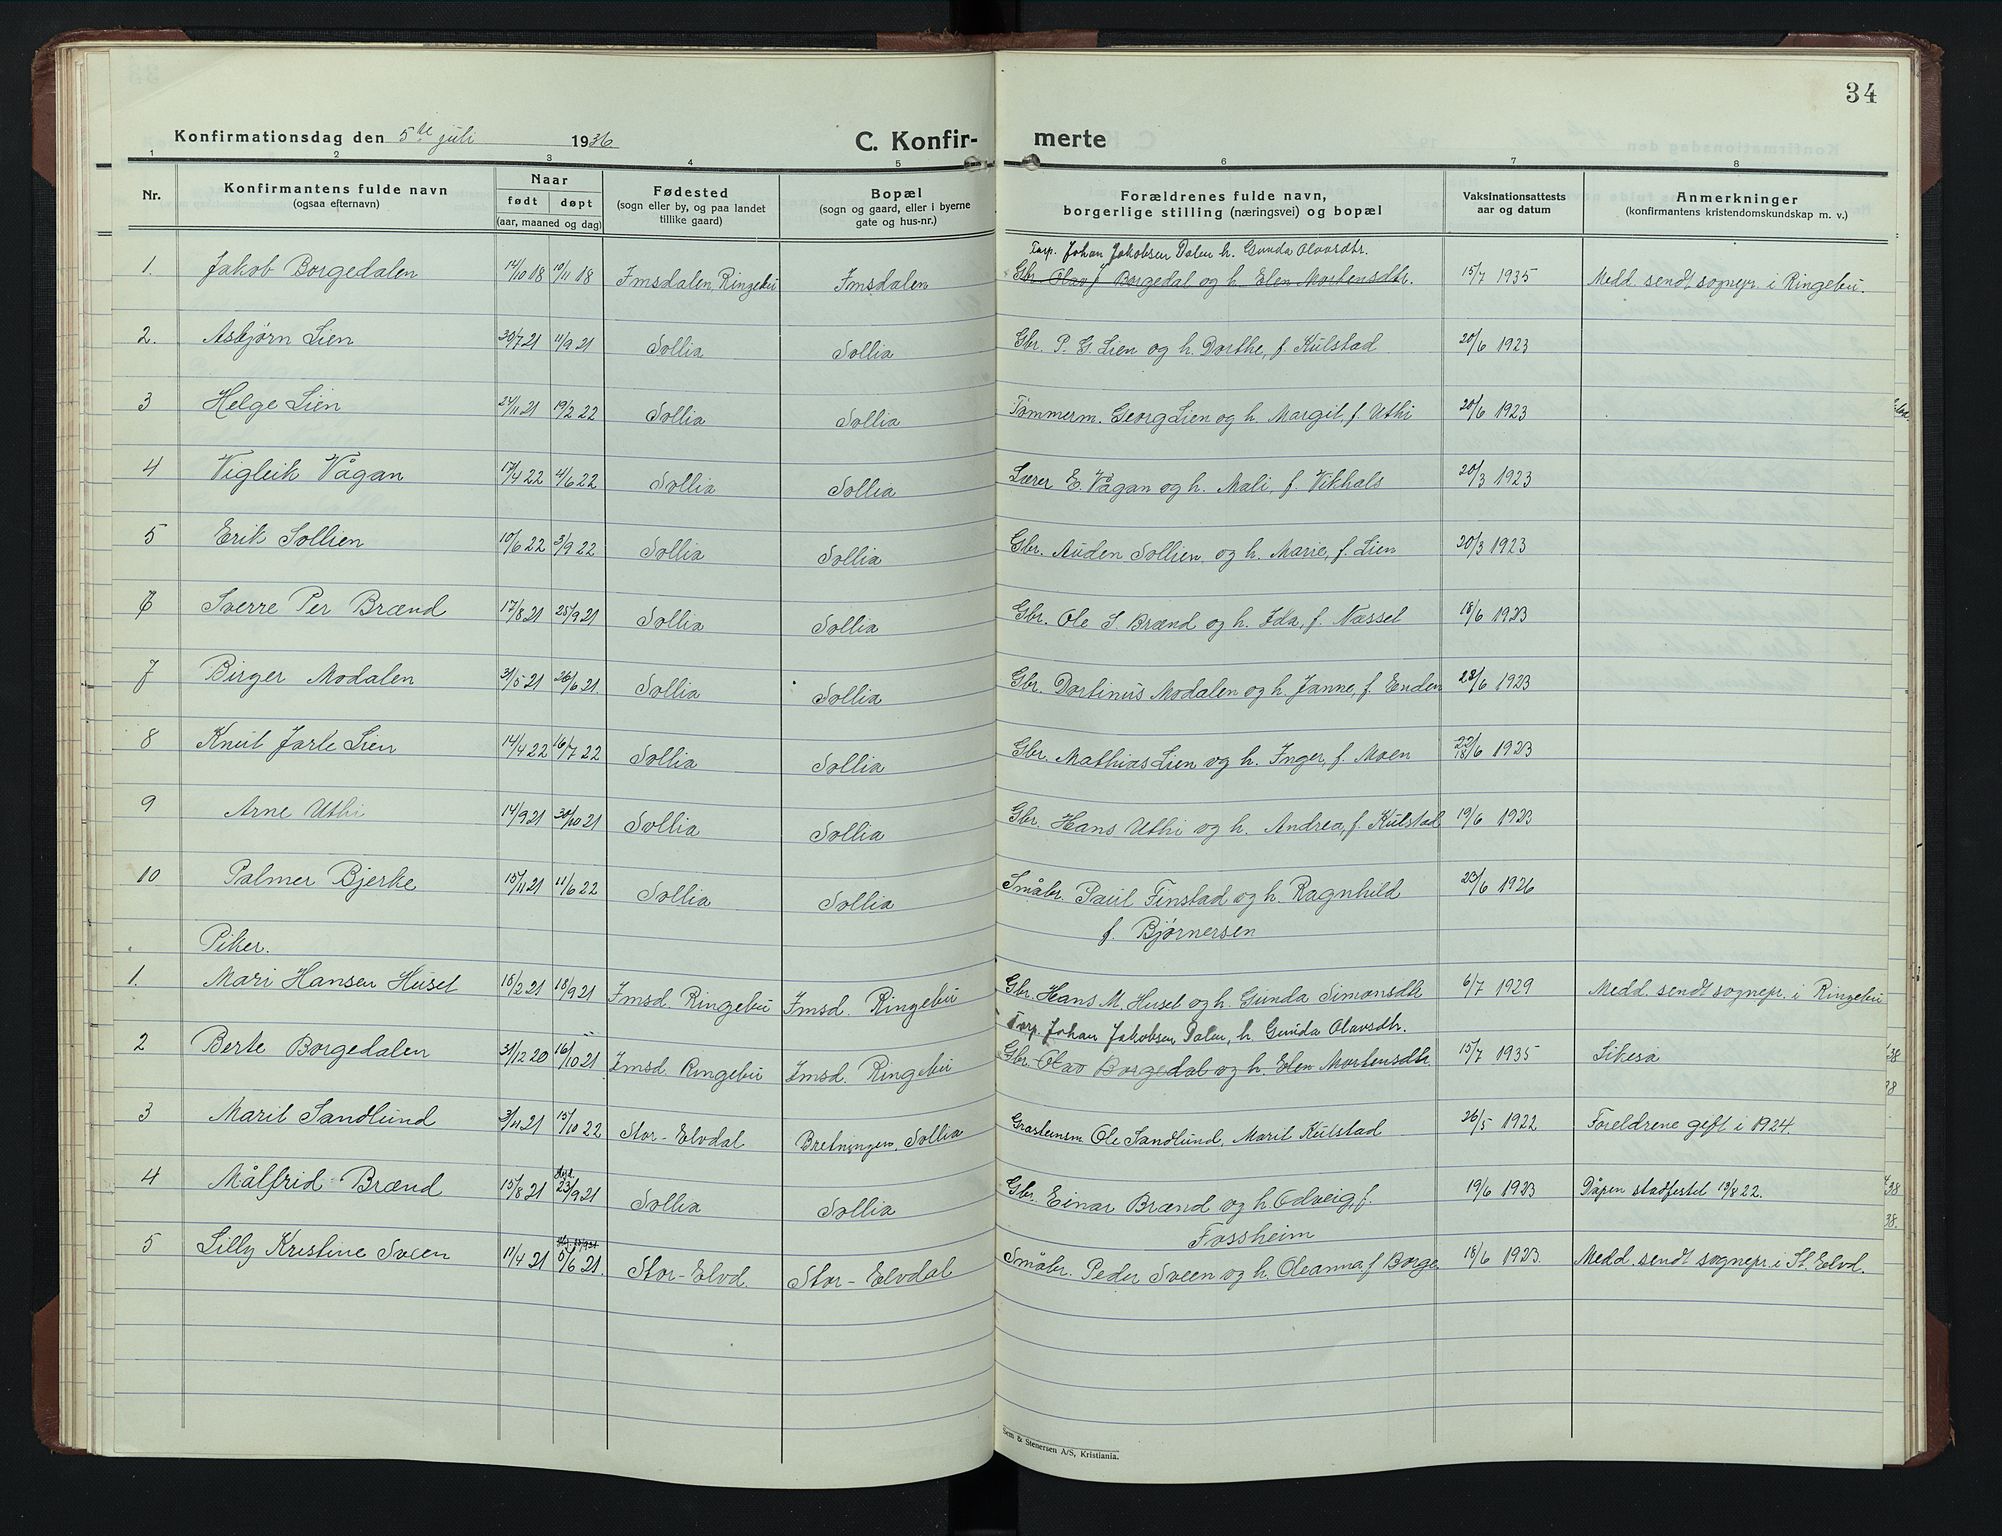 34
Konfirmationsdag den 5te juli 1936 C. Konfir- merte
1 2 3 4 5 6 7 8
Nr. Konfirmantens fulde navn (ogsaa efternavn) Naar født døpt (aar, maaned og dag) Fødested (sogn eller by, og paa landet tillike gaard) Bopæl (sogn og gaard, eller i byerne gate og hus-nr.) Forældrenes fulde navn, borgerlige stilling (næringsvei) og bopæl Vaksinationsattests aar og datum Anmerkninger (konfirmantens kristendomskundskap m. v.)
Torp. Johan Jakobsen Dalen h. Gunda Olavsdtr.
1. Jakob Borgedalen 14/10 18 10/11 18 Imsdalen, Ringebu Imsdalen Gbr. Olav J Borgedal og h. Elen Mortensdtr. 15/7 1935 Medd. sendt sognepr. i Ringebu.
2. Asbjørn Lien 30/7 21 11/9 21 Sollia Sollia Gbr. P. G. Lien og h. Dorthe, f. Kulstad 20/6 1923
3 Helge Lien 24/11 21 19/2 22 Sollia Sollia Tømmerm. Georg Lien og h. Margit, f. Uthi 20/6 1923
4 Vigleik Vågan 17/4 22 4/6 22 Sollia Sollia Lærer E. Vågan og h. Mali, f. Vikhals 20/3 1923
5 Erik Sollien 10/6 22 3/9 22 Sollia Sollia Gbr. Auden Sollien og h. Marie, f. Lien 20/3 1923
6 Sverre Per Brænd 17/8 21 25/9 21 Sollia Sollia Gbr. Ole S. Brænd og h. Ida, f. Næsset 18/6 1923
7 Birger Modalen 31/5 21 26/6 21 Sollia Sollia Gbr. Dortinus Modalen og h. Janne, f. Enden 28/6 1923
8 Knut Jarle Lien 14/4 22 16/7 22 Sollia Sollia Gbr. Mathias Lien og h. Inger, f. Moen 22/18/6 1923
9 Arne Uthi 14/9 21 30/10 21 Sollia Sollia Gbr. Hans Uthi og h. Andrea, f. Kulstad 19/6 1923
10 Palmer Bjerke 15/11 21 11/6 22 Sollia Sollia Småbr. Paul Finstad og h. Ragnhild 23/6 1926
f. Bjørnersen
Piker.
1. Mari Hansen Huset 15/2 21 18/9 21 Imsd. Ringebu Imsd. Ringebu Gbr. Hans M. Huset og h. Gunda Simonsdtr 6/7 1929 Medd. sendt sognepr. i Ringebu
Torp. Johan Jakobsen Dalen, h. Gunda Olavsdtr.
2 Berte Borgedalen 31/12 20 16/10 21 Imsd. Ringebu Imsd. Ringebu Gbr. Olav Borgedal og h. Elen Mortensdtr. 15/7 1935 Likeså
3 Marit Sandlund 3/4 21 15/10 22 Stor-Elvdal Bretningen, Sollia Gråsteinsm Ole Sandlund, Marit Kulstad 26/5 1922. Foreldrene gift i 1924.
4 Målfrid Brænd 15/8 21 23/9 21 Sollia Sollia Gbr. Einar Brænd og h. Odveig, f. 19/6 1923 Dåpen stadfestet 13/8 22.
Fossheim
5 Lilly Kristine Sveen 11/4 21 5/6 21. Stor-Elvd. Stor-Elvdal Småbr. Peder Sveen og h. Oleanna f. Borge 18/6 1923. Medd. sendt sognepr. i St. Elvd.
Sem & Stenersen A/S, Kristiania.